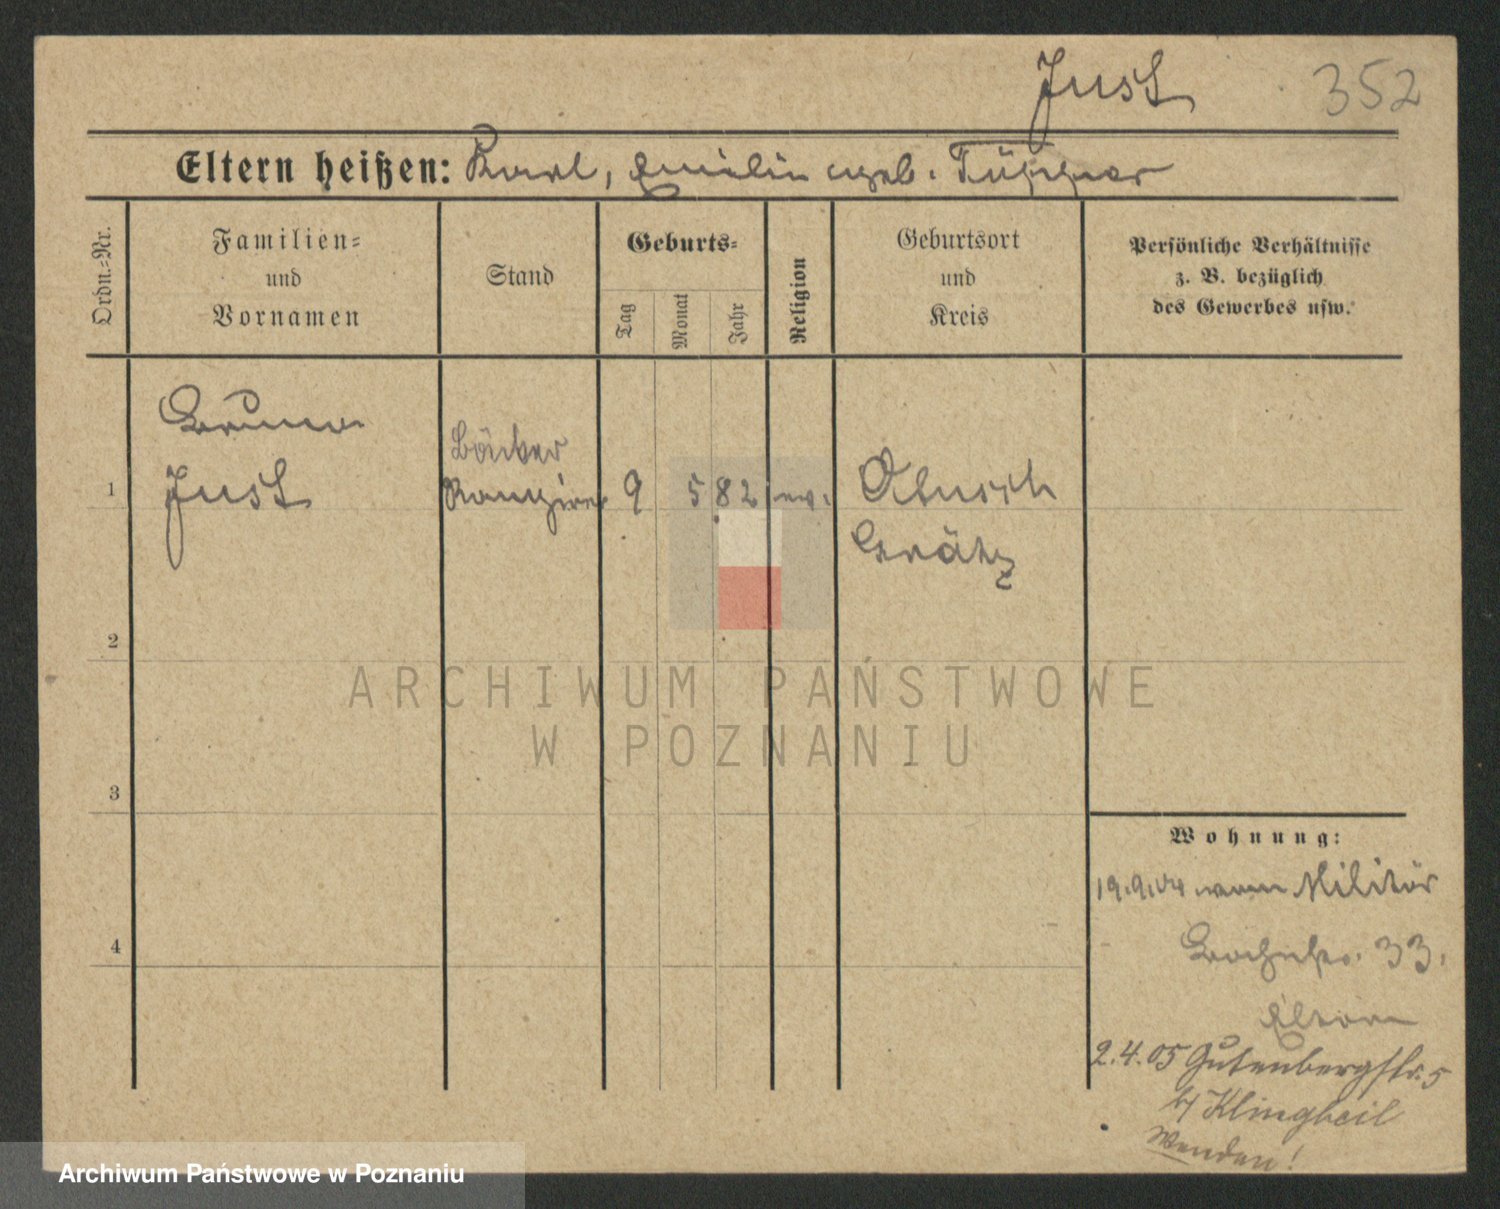 Just 352
Eltern heißen: Karl, Emilie geb. Tüpper
Ordn.-Nr.
Familien-
und
Vornamen
Stand
Geburts-
Tag
Monat
Jahr
Religion
Geburtsort
und
Kreis
Persönliche Verhältnisse
z. B. bezüglich
des Gewerbes usw.
Bruno
Bäcker
1 Just Rangirer 9 5 82 ev.
Grätz
2
3
4
Wohnung:
19.9.04 vom Militär
33.
Eltern
2.4.05 Gutenbergstr. 5
b/ Klingbeil
Wenden!
ARCHIWUM PAŃSTWOWE
W POZNANIU
Archiwum Państwowe w Poznaniu